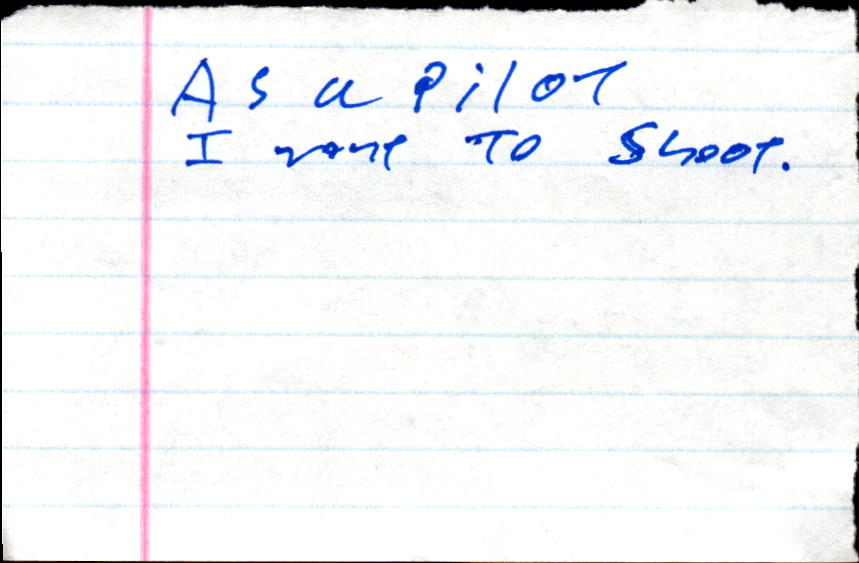 As a pilot
I want to shoot.